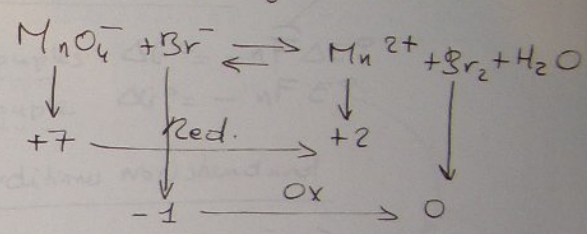 MnO₄⁻ + Br⁻ ⇌ Mn²⁺ + Br₂ + H₂O
+7 Red. +2
-1 Ox 0